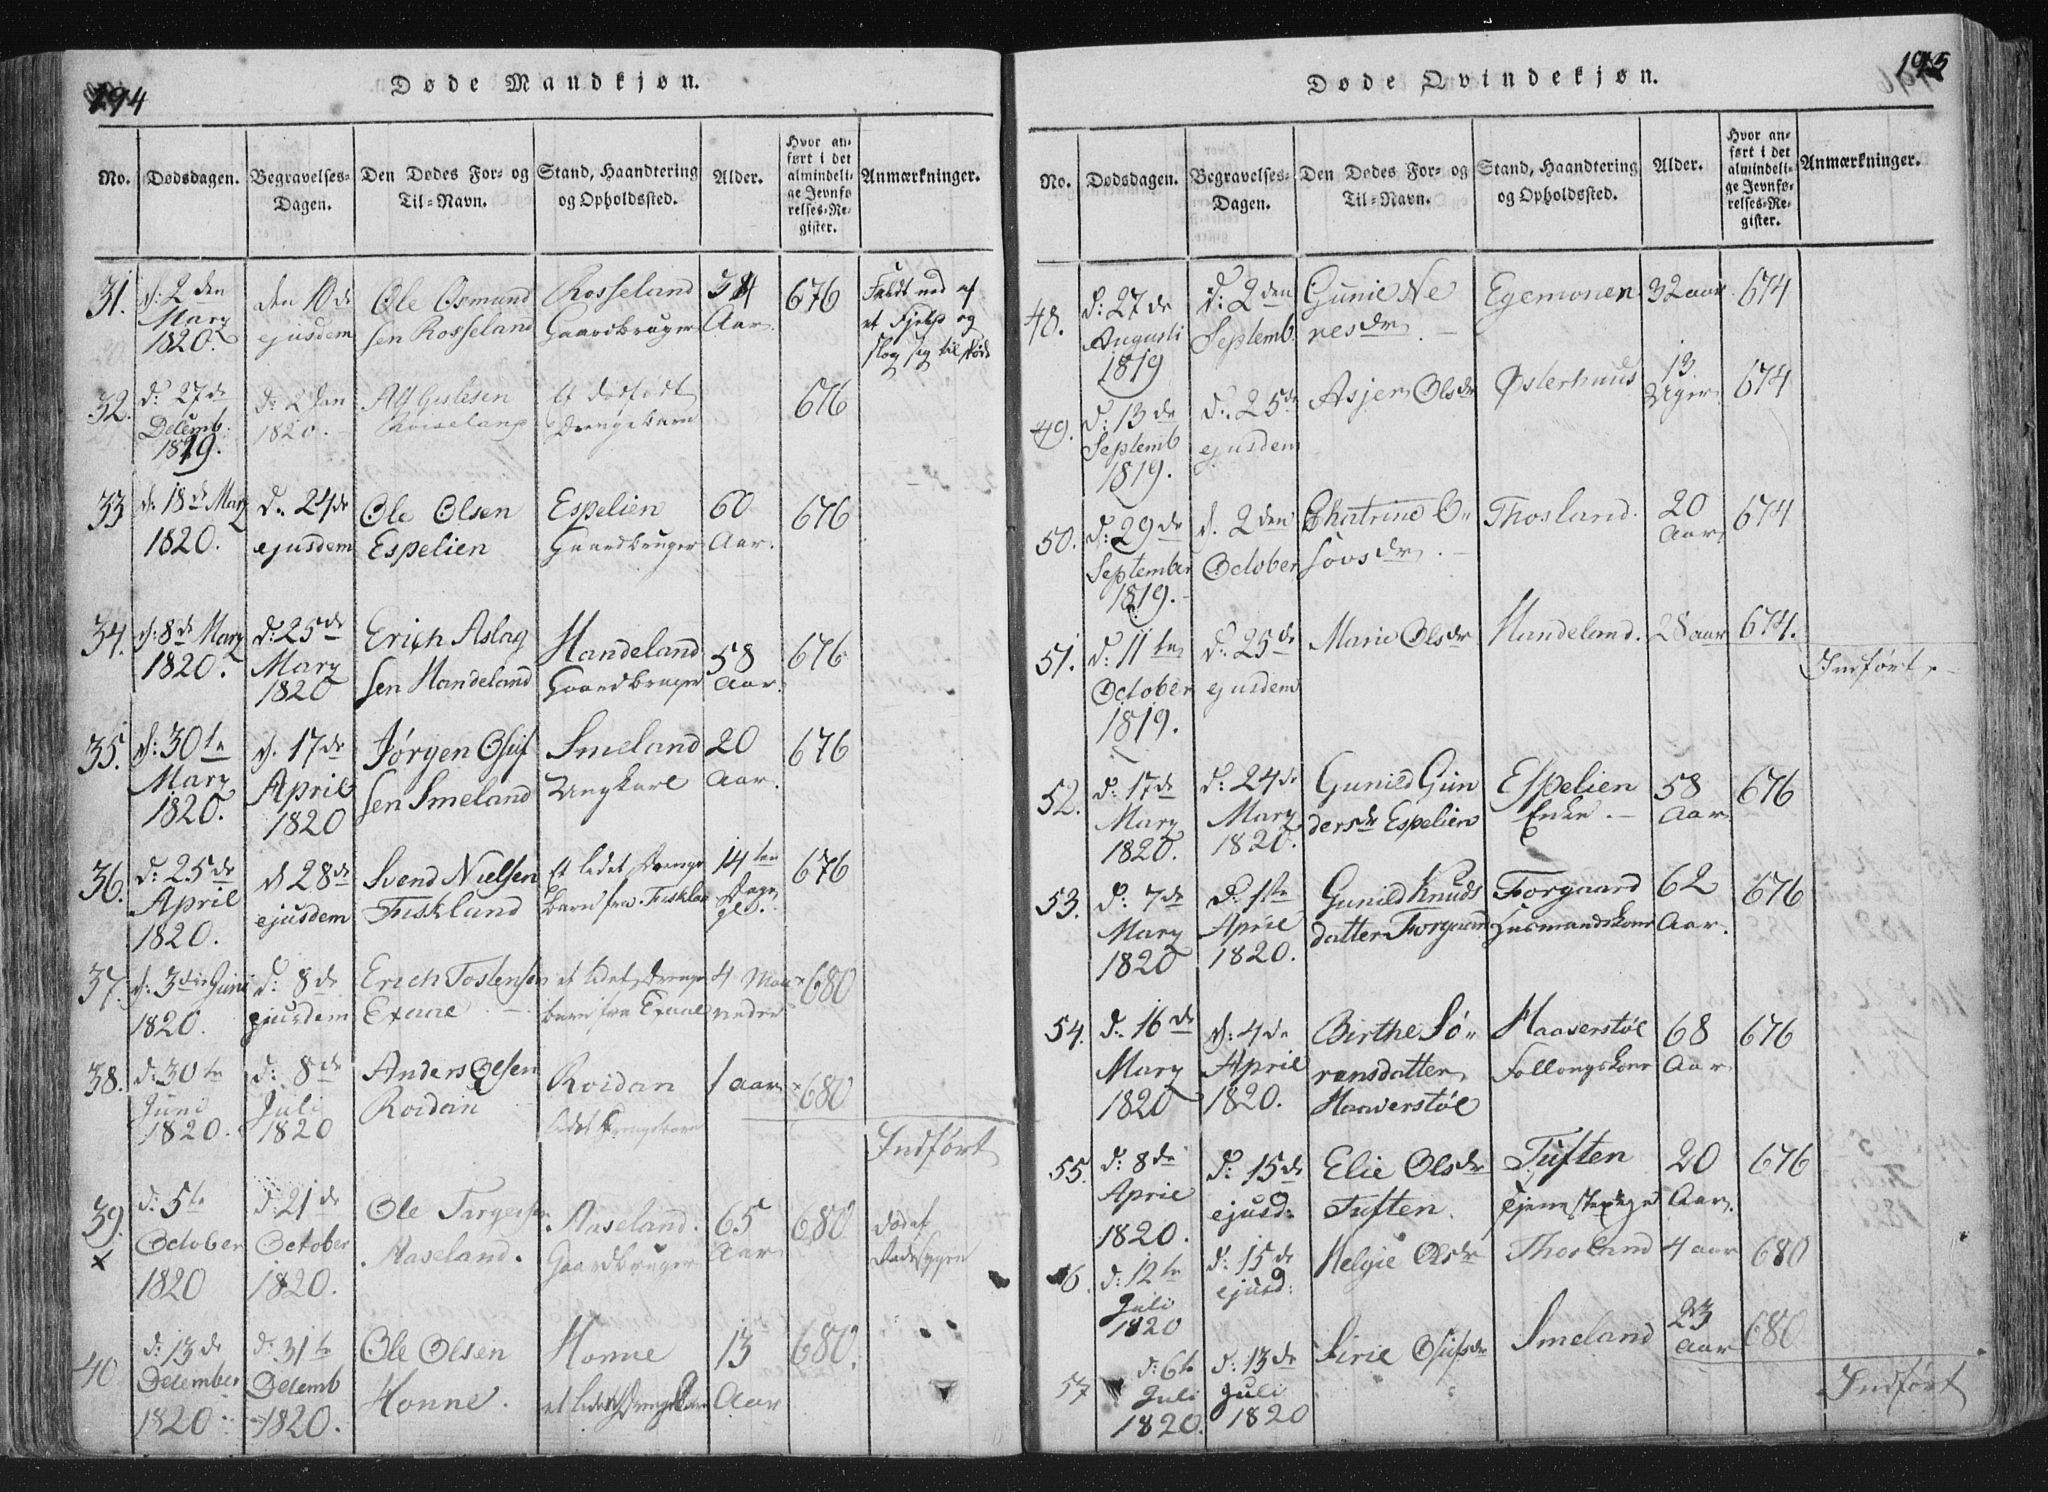 194
Døde Mandkjøn.
No. Dødsdagen. Begravelses-Dagen. Den Dødes For- og Til-Navn. Stand, Haandtering og Opholdssted. Alder. Hvor anført i det almindelige Jevnførelses-Register. Anmærkninger.
31. d: 2den den 10de Ole Osmund Rosseland 34 676 Faldt ned af
Marz ejusdem sen Rosseland Gaardbruger Aar et Fjeld og
1820. slog sig til død
32. d: 27de d: 2 Jan Et dødfødt 676
Decemb. 1820. Drengebarn
1819.
33 d: 18de Marz d. 24de Ole Olsen Espelien 60 676
1820. ejusdem Espelien Gaardbruger Aar.
34. d: 8de Marz d: 25de Erich Aslag Handeland 58 676
1820. Marz sen Handeland Gaardbruger Aar.
1820
35. d: 30te d. 17de Jørgen Osuf Smeland 20 676
Marz April sen Smeland Ungkarl Aar.
1820. 1820
36. d: 25de d 28de Svend Nielsen Et lidet Drenge 14ten 676
April ejusdem Fiskland barn fra Dage
1820. gl.
37. d: 3die Juni d: 8de Erich Tostensen et lidet Drenge 4 Maa 680
1820. ejusdem Exaae barn fra Exaae neder
38. d: 30te d: 8de Anders Olsen Roidan 1 aar 680
Juni Juli Roidan lidet Drengebarn
1820. 1820
Indført
39. d: 5te d: 21de Ole Aaseland. 65 680 Dødet
× October October Aaseland. Gaardbruger Aar Radesygen
1820 1820.
40 d: 13de d: 31te Ole Olsen Honne 13 680.
December Decemb Honne. et lidet Aar
1820 1820.
195
Døde Qvindekjøn.
No. Dødsdagen. Begravelses-Dagen. Den Dødes For- og Til-Navn. Stand, Haandtering og Opholdssted. Alder. Hvor anført i det almindelige Jevnførelses-Register. Anmærkninger.
48. d: 27de d: 2den Gunie Ne Egemonen 32 aar 674
Augusti Septemb. resdr
1819
49. d: 13de d. 25de Asjer Olsdr Østerhuus 13 674
Septemb ejusdem Uger
1819.
50. d: 29de d. 2den Chatrine O- Thosland. 20 674
September October sovsdr. Aar
1819.
51. d: 11te d: 25de Marie Olsdr Handeland. 28 aar 674.
October ejusdem Indført
1819.
52. d: 17de d: 24de Gunild Gun Espelien 58 676
Marz Marz dersdr Espelien Enke Aar
1820. 1820.
53. d: 7de d: 1ste Gunild Knuds Forgaard 62 676
Marz April datter Forgaard Husmandskone Aar.
1820 1820.
54. d. 16de d: 4de Birthe Sø- Haaverstøl 68 676
Marz April rensdatter Aar
1820 1820. Haaverstøl
55. d: 8de d: 15de Elie Olsdr Tuften 20 676
April ejusd: Tuften. Tjenestepige Aar.
1820.
56. d: 12te d: 15de Helgie Olsdr Thosland 4 aar 680
Juli ejusd:
1820
57 d: 6te d: 13de Sirie Osufsdr Smeland 23 680
Juli Juli Aar
1820. 1820
Indført